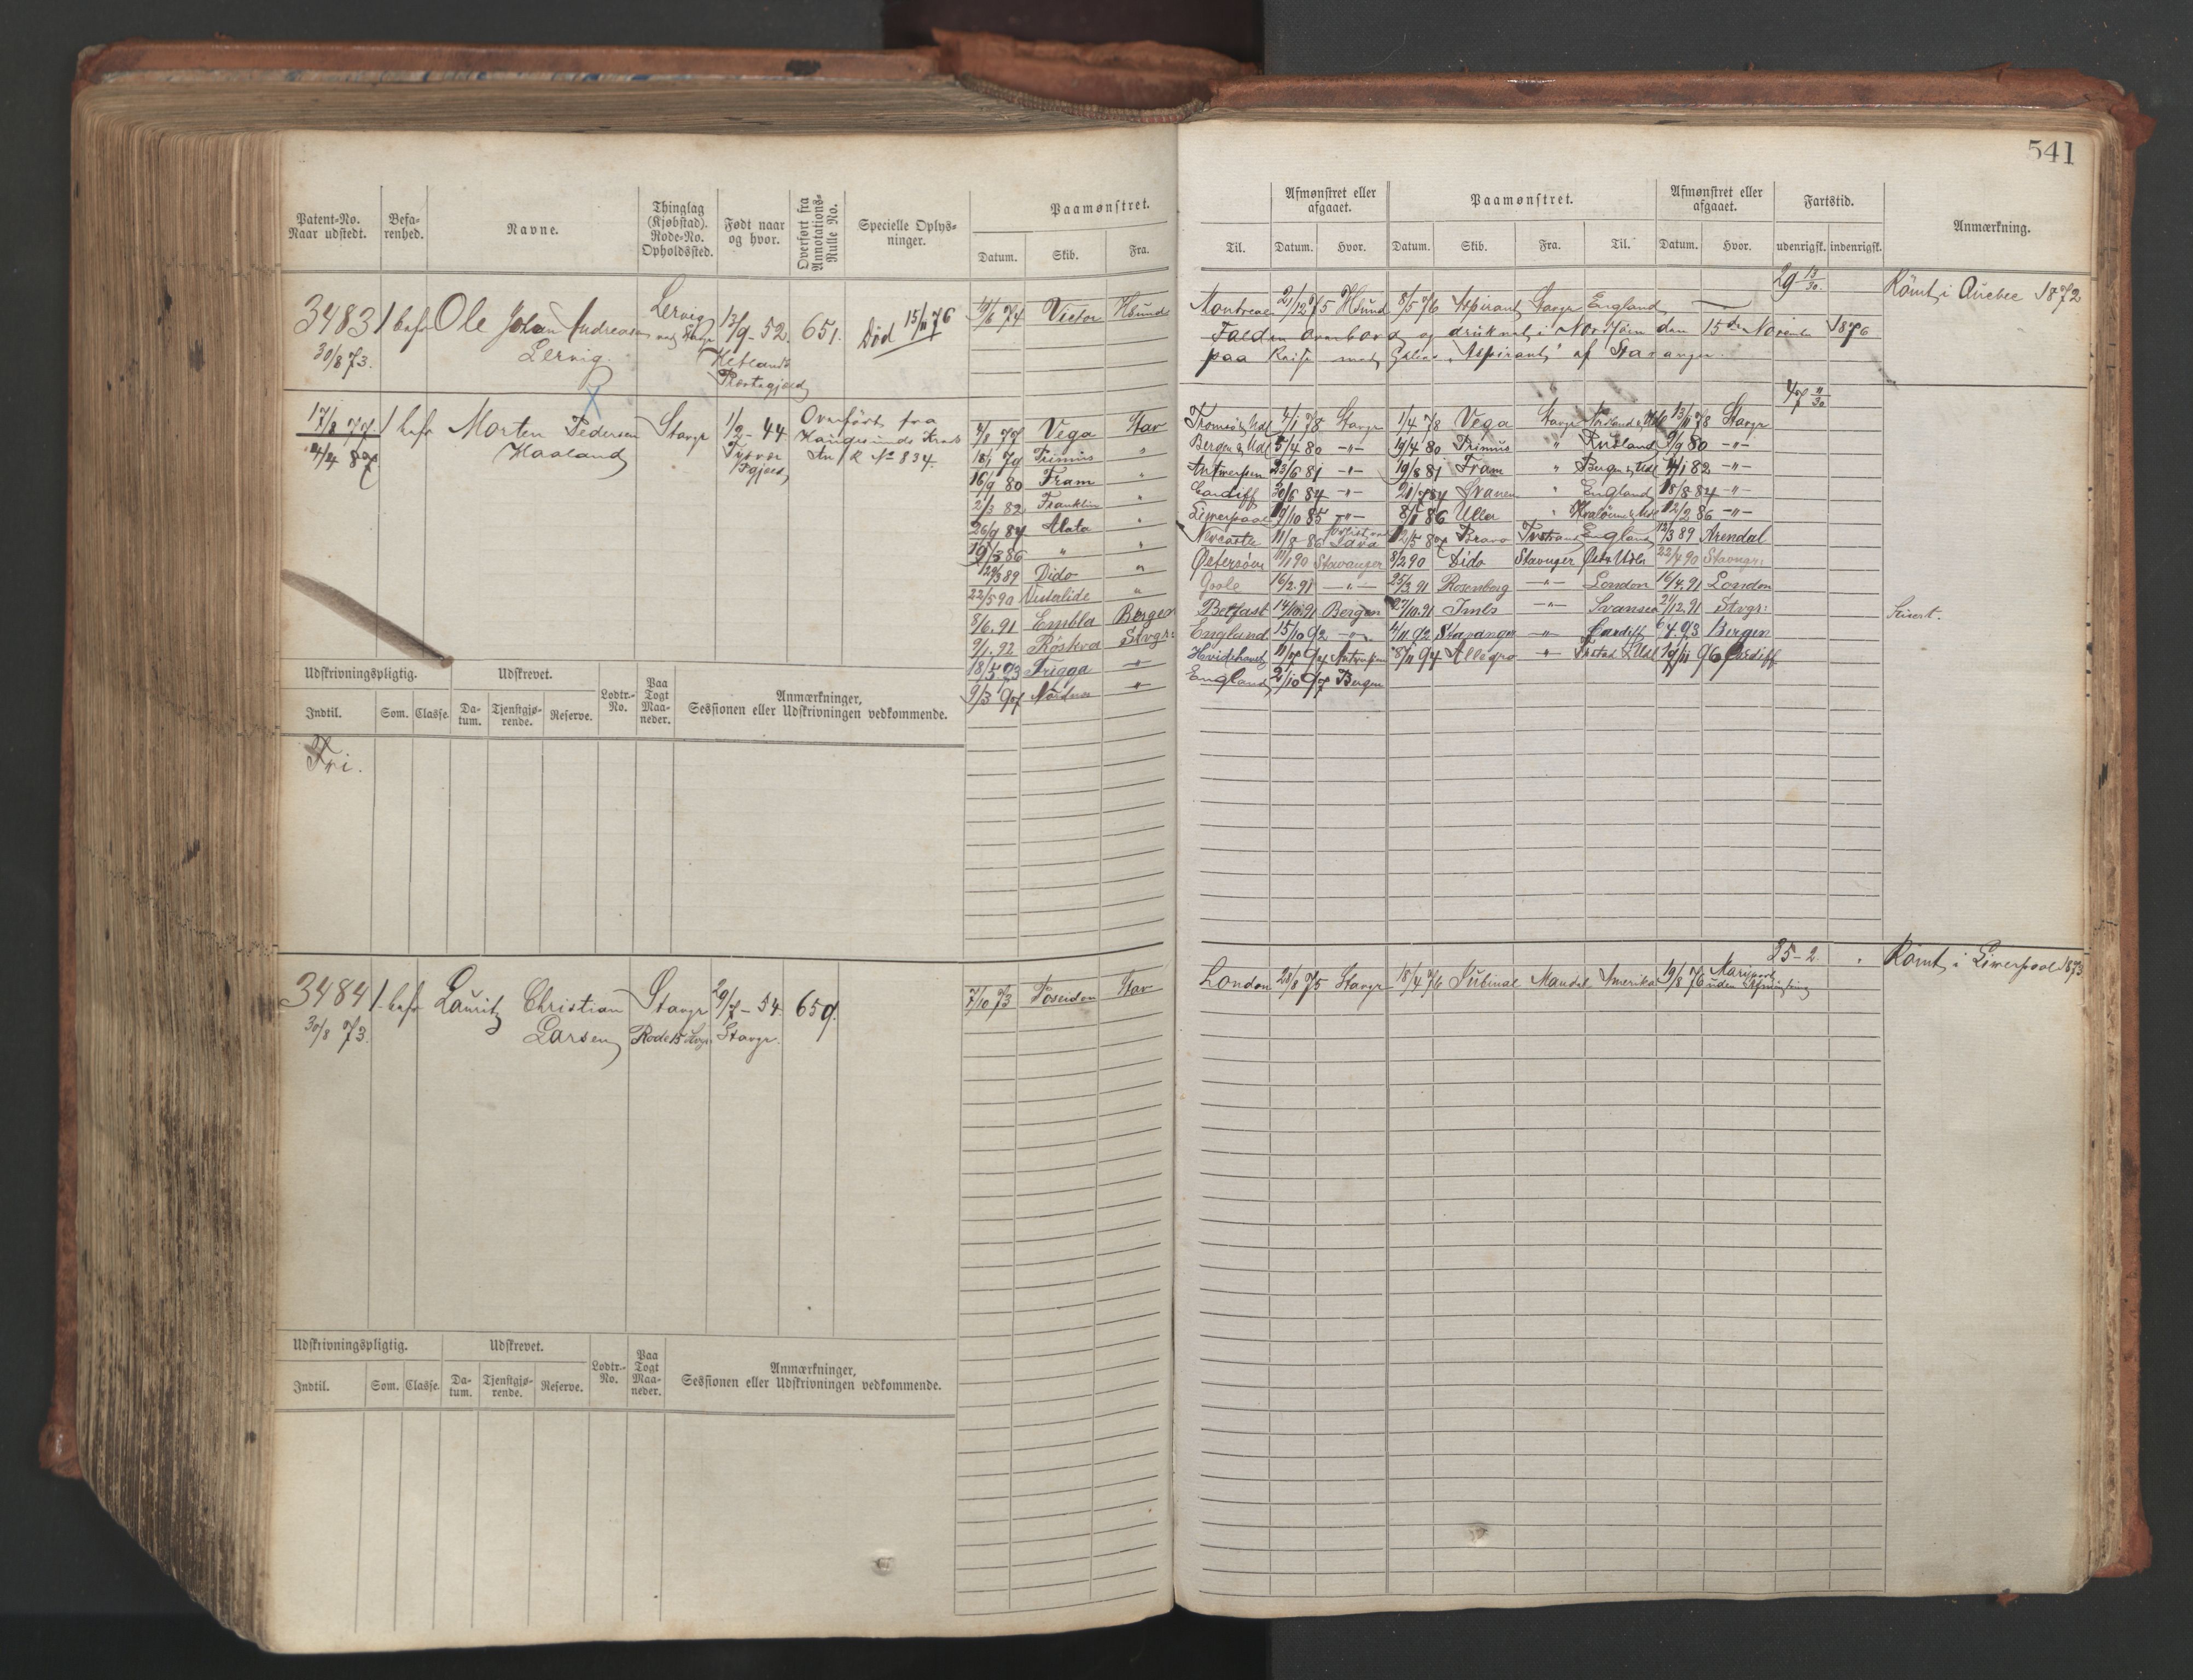 541
Patent-No. Naar udstedt.
Befarenhed.
Navne.
Thinglag (Kjøbstad). Rode-No. Opholdssted.
Født naar og hvor.
Overført fra Annotations-Rulle No.
Specielle Oplysninger.
Paamønstret.
Datum. Skib. Fra.
Til.
Afmønstret eller afgaaet.
Datum. Hvor.
Paamønstret.
Datum. Skib. Fra. Til.
Afmønstret eller afgaaet.
Datum. Hvor.
Fartstid.
udenrigsk. indenrigsk.
Anmærkning.
3483 1 bef Ole Johan Andreasen Lervig 13/9-52 651. Død 15/11 76
30/8 73. Lervig. Hetlands Præstegjæld
19/6 74 Victor Hsund
29 13/30 Römt i Quebec 1872
Montreal 21/12 75 Hsund 8/5 76 Aspirant Stavgr England
Falden overbord og druknet i Nordsjøen den 15de Novemb 1876
paa Reise med Aspirant af Stavanger.
47 11/30
17/8 77 1 befr Morten Pedersen Stavgr 1/2-44 Overført fra
24/4 87 Haaland Tysvær Haugesunds Kreds
Pgjeld An/R No 834.
4/8 77 Vega Stav Tromsö & Udl 4/1 78 Stavgr 1/4 78 Vega Stavgr Nordland & Udl 13/11 78 Stavgr
18/1 79 Primus " Bergen & Udl 5/4 80 -"- 19/4 80 Primus " Rusland 9/9 80 -"-
16/9 80 Fram " Antwerpen 23/6 81 -"- 19/8 81 Fram " Bergen & Udl 4/1 82 -"-
2/3 82 Franklin " Cardiff 30/6 84 -"- 21/7 84 Svanen " England 18/8 84 -"-
26/9 84 Alata " Liverpool 19/10 85 -"- 8/1 86 Ulla " 12/2 86 -"-
19/3 86 " " Newcastle 11/8 86 12/5 87 Bravo England 13/3 89 Arendal
29/3 89 Dido " Østersøen 11/1 90 Stavanger 8/2 90 Dido Stavanger Øst & Udla 22/4 90 Stavngr:
22/5 90 " Goole 16/2.91 -"- 25/3 91 Rosenborg -"- London 16/4.91 London
8/6.91 Embla Bergen Belfast 14/10.91 Bergen 27/10.91 Imbs -"- Svansea 21/12.91 Stvgr:
9/1.92 Röskva Stvgr: England 15/10 92 -"- 4/11 92 Stavanger -"- Cardiff 6/4.93 Bergen
18/5 93 Frigga -"- Hvidehavet 11/7 94 Antwerpen 8/11 94 Allegro -"- 19/11 96 Cardiff
9/3 97 Nordnæs -"- England 2/10 97 Bergen
Udskrivningspligtig. Udskrevet. Lodtr.-No. Paa Togt Maaneder. Anmærkninger, Sessionen eller Udskrivningen vedkommende.
Indtil. Som. Classe. Datum. Tjenstgjørende. Reserve.
Fri.
25-2. Römt i Liverpool 1873
3484 1 befr Lauritz Christian Stavgr 29/7-54 659.
30/8 73. Larsen Rode 15 Stavgr.
7/10 73 Poseidon Stav London 28/8 75 Stavgr 18/4 76 Jubinal Mandal Amerika 19/8 76 Mariport uden Afmønstring
Udskrivningspligtig. Udskrevet. Lodtr.-No. Paa Togt Maaneder. Anmærkninger, Sessionen eller Udskrivningen vedkommende.
Indtil. Som. Classe. Datum. Tjenstgjørende. Reserve.